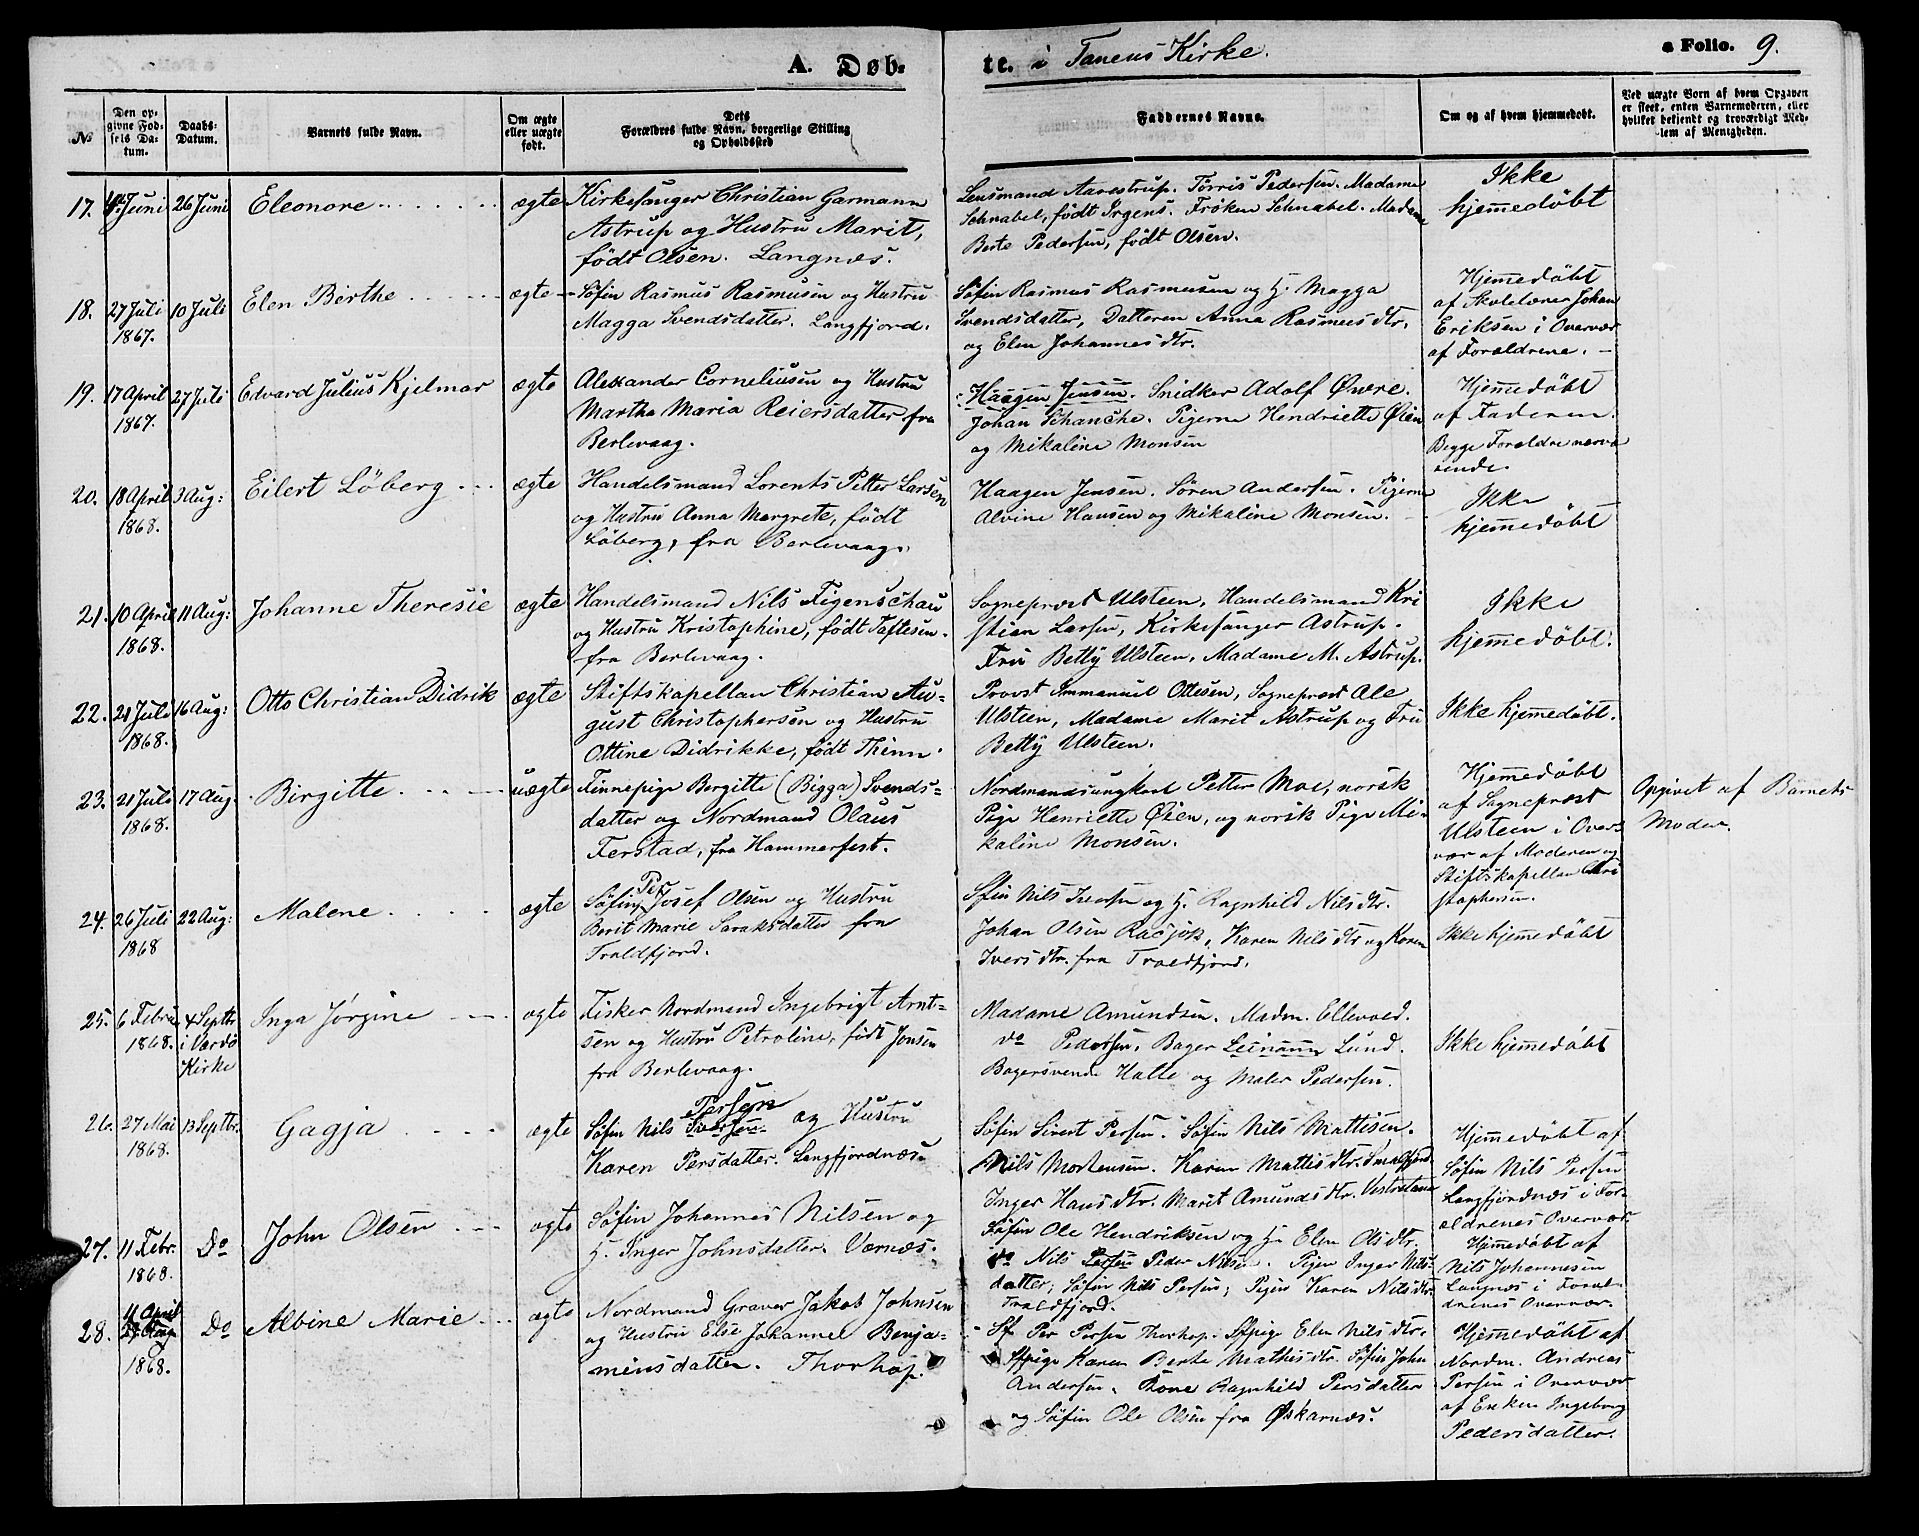 A. Døb-
te. i Tanens Kirke.
a Folio. 9.
№
Den op-
givne Fød-
sels Da-
tum.
Daabs-
Datum.
Barnets fulde Navn.
Om ægte
eller uægte
født.
Dets
Forældres fulde Navn, borgerlige Stilling
og Opholdssted
Faddernes Navne.
Om og af hvem hjemmedøbt.
Ved uægte Børn af hvem Opgaven
er skeet, enten Barnemoderen, eller
hvilket bekjendt og troværdigt Med-
lem af Menigheden.
17. Juni 26 Juni Eleonore ægte
Kirkesanger Christian Garmann
Astrup og Hustru Marit,
født Olsen. Langnæs.
Lensmand Aarestrup. Törris Pedersen. Madame
Schnabel, født Irgens. Frøken Schnabel. Madame
Berte Pedersen, født Olsen.
Ikke
hjemmedöbt
18. 27 Juli
1867.
10 Juli Elen Birthe ægte
Söfin Rasmus Rasmusen og Hustru
Magga Svendsdatter. Langfjord.
Söfin Rasmus Rasmusen og H. Magga
Svendsdatter, Datteren Anna Rasmusdtr.
og Elen Johannesdtr.
Hjemmedöbt
af Skolelærer Johan
Eriksen i Overvær
af Forældrene.
19. 17 April
1867.
27 Juli Edvard Julius Kjelmar ægte
Alexander Corneliusen og Hustru
Martha Maria Reiersdatter fra
Berlevaag.
Haagen Jensen. Snidker Adolf Øvere.
Johan Schanche. Pigerne Hendriette Øien
og Mikaline Monsen
Hjemmedöbt
af Faderen.
Begge Forældre nærvæ
rende.
20. 18 April
1868.
3 Aug: Eilert Löberg ægte
Handelsmand Lorents Petter Larsen
og Hustru Anna Margrete, född
Löberg, fra Berlevaag.
Haagen Jensen. Sören Andersen. Pigerne
Alvine Hansen og Mikaline Monsen.
Ikke
hjemmedöbt
21. 10 April
1868.
11 Aug: Johanne Theresie ægte
Handelsmand Nils Figenschau
og Hustru Kristophine, født Taftesen.
fra Berlevaag.
Sogneprœst Ulsteen, Handelsmand Kri
stian Larsen, Kirkesanger Astrup.
Fru Betty Ulsteen, Madame M. Astrup.
Ikke
hjemmedöbt.
22. 21 Juli
1868.
16 Aug: Otto Christian Didrik ægte
Stiftskapellan Christian Au-
gust Christophersen og Hustru
Ottine Didrikke, født Thinn.
Provst Immanuel Ottesen, Sogneprœst Ole
Ulsteen, Madame Marit Astrup og Fru
Betty Ulsteen.
Ikke hjemmedöbt.
23. 21 Juli
1868.
17 Aug. Birgitte uægte
Finnepige Bergitte (Bigga) Svends-
datter og Nordmand Olaus
Ferstad, fra Hammerfest.
Nordmandsungkarl Petter Moe, norsk
Pige Henriette Øien, og norsk Pige Mi-
kaline Monsen.
Hjemmedöbt
af Sogneprœst
Ulsteen i Over-
vær af Moderen og
Stiftskapellan Chri
stophersen.
Opgivet af Barnets
Moder.
24. 26 Juli
1868
22 Aug: Malene ægte
Söfin Per Josef Olsen og Hustru
Berit Marie Saraksdatter fra
Troldfjord.
Sfin Nils Iversen og H. Ragnhild Nilsdtr.
Johan Olsen Rasjok, Karen Nilsdtr og Karen
Iversdtr. fra Troldfjord.
Ikke hjemmedöbt
25. 6 Febru
1868.
4 Septbr.
i Vardö
Kirke
Inga Jørgine ægte
Fisker Nordmand Ingebrigt Arnt-
sen og Hustru Petroline, født Jonsen
fra Berlevaag.
Madame Amundsen. Madm. Ellevold.
do Pedersen. Bager Leimann Lund.
Bagersvend Halle og Maler Pedersen.
Ikke hjemmedöbt
26. 27 Mai
1868.
13 Septbr. Gagja ægte
Söfin Nils Persen og Hustru
Karen Persdatter. Langfjordnæs.
Söfin Sivert Persen. Söfin Nils Mattisen.
Nils Mortensen. Karen Mattisdtr. Smalfjord.
Inger Hansdtr. Marit Amundsdtr. Vestertana
Hjemmedöbt af
Söfin Nils Persen
Langfjordnæs i For-
ældrenes Overvær.
27. 11 Febr.
1868.
Do John Olsen ægte
Söfin Johannes Nilsen og
H. Inger Johnsdatter. Værnæs.
Söfin Ole Hendriksen og H. Elen Olsdtr.
do Nils Persen Peder Nilsen. Pigen Inger Nils-
datter, Söfin Nils Persen; Pigen Karen Nilsdtr.
Troldfjord.
Hjemmedöbt af
Nils Johannesen
Langnæs i Foræl-
drenes Overvær.
28. 11 April
1868.
Do Albine Marie ægte
Nordmand Graver Jakob Johnsen
og Hustru Else Johanne Benja-
minsdatter. Thorhop.
Sf Per Persen Thorhop. Sfpige Elen Nilsdtr.
Sfpige Karen Berte Mathisdtr. Söfin John
Andersen. Kone Ragnhild Persdatter
og Söfin Ole Olsen fra Øskarnæs.
Hjemmedöbt af
Nordm. Andreas
Persen i Overvær
af Enken Ingeborg
Pedersdatter.